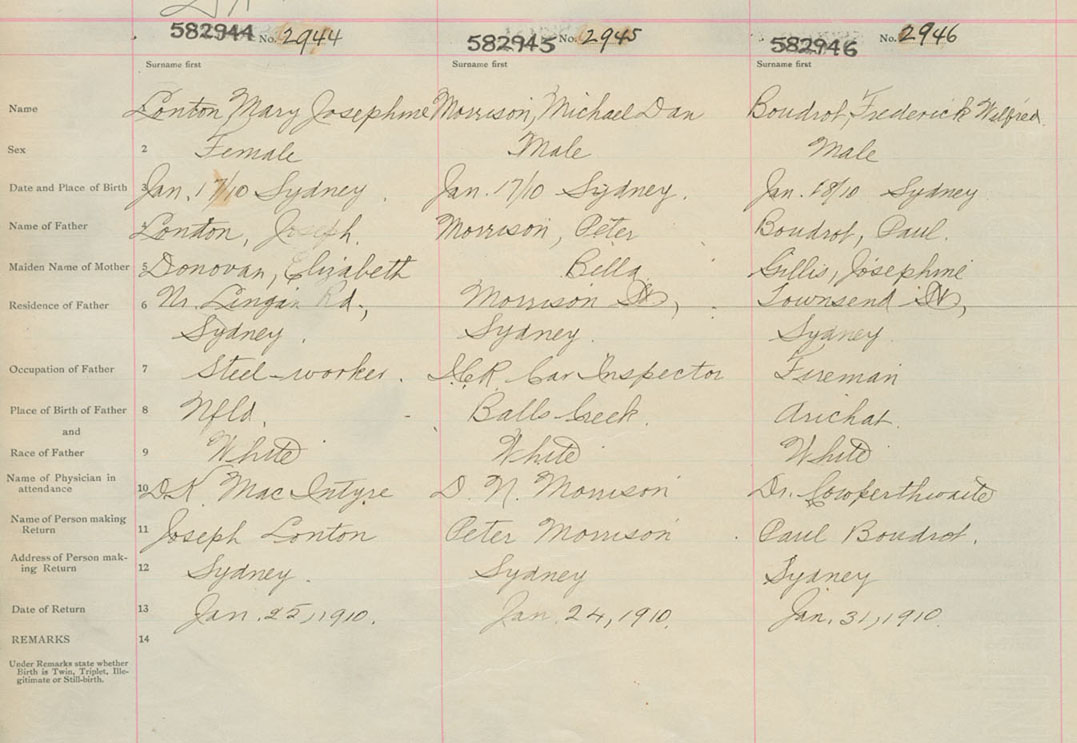 582944 No. 2944 582945 No. 2945 582946 No. 2946
Surname first Surname first Surname first
Name 1 Lonton Mary Josephine Morrison, Michael Dan Boudrot, Frederick Wilfred.
Sex 2 Female Male Male
Date and Place of Birth 3 Jan. 17/10 Sydney. Jan. 17/10 Sydney. Jan. 18/10 Sydney
Name of Father 4 London, Joseph. Morrison, Peter Boudrot, Paul.
Maiden Name of Mother 5 Donovan, Elizabeth Bella Gillis, Josephine
Residence of Father 6 Nr. Lingan Rd., Morrison St, Townsend St,
Sydney. Sydney. Sydney
Occupation of Father 7 Steel-worker. I.C.R. Car Inspector Fireman
Place of Birth of Father 8 Nfld. Balls Creek. Arichat.
and
Race of Father 9 White White White
Name of Physician in
attendance 10 DK MacIntyre D. N. Morrison Dr. Cowperthwaite
Name of Person making
Return 11 Joseph Lonton Peter Morrison Paul Boudrot.
Address of Person mak-
ing Return 12 Sydney. Sydney Sydney
Date of Return 13 Jan. 25, 1910. Jan. 24, 1910. Jan. 31, 1910.
REMARKS 14
Under Remarks state whether
Birth is Twin, Triplet, Ille-
gitimate or Still-birth.